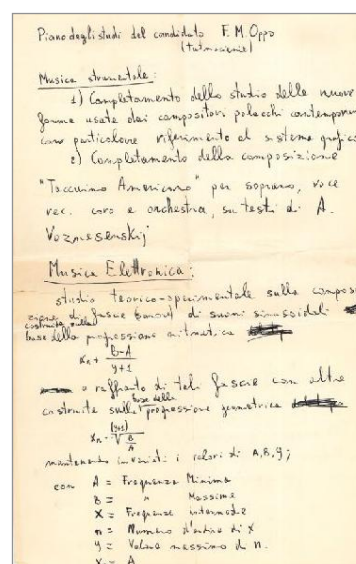 Piano degli studi del candidato F. M. Oppo
Musica strumentale:
1) Completamento dello studio delle nuove
forme usate dai compositori polacchi
con particolare riferimento al sistema
2) Completamento della composizione
"Taccuino Americano" per soprano, voce
rec. coro e orchestra, su testi di A.
Voznesenskij
Musica Elettronica:
studio teorico-sperimentale sulla
di fasce di suoni sinusoidali
costruite sulla
base della progressione aritmetica
B-A
y+1
e raffronto di tali fasce con altre
base della
costruite sulla progressione geometrica
(y+1)
B
A
mantenendo invariati i valori di A, B, y;
con A = Frequenza Minima
B = " Massima
X = Frequenze intermedie
n = Numero d'ordine di X
y = Valore massimo di n.